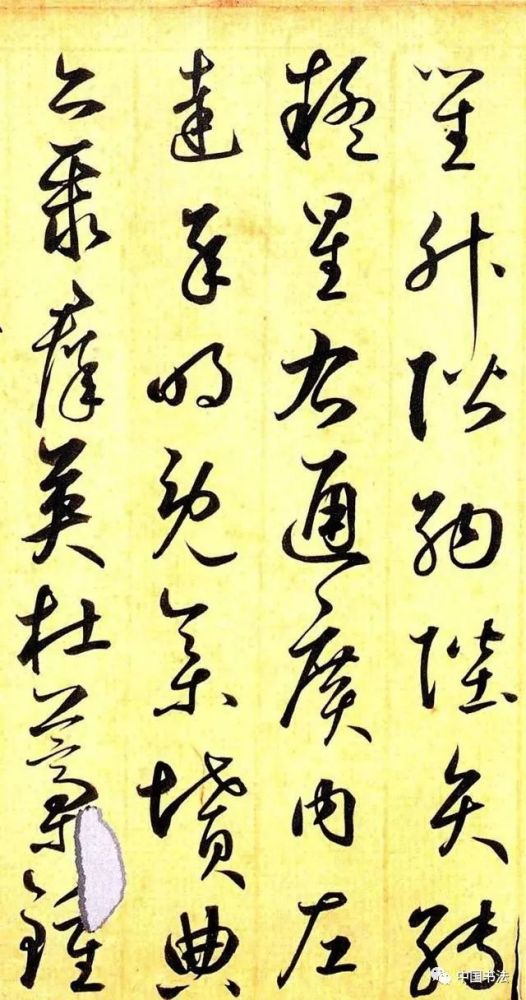 笙升階納陛弁轉
疑星右通廣內左
達承明既集墳典
亦聚群英杜藁鍾
中国书法